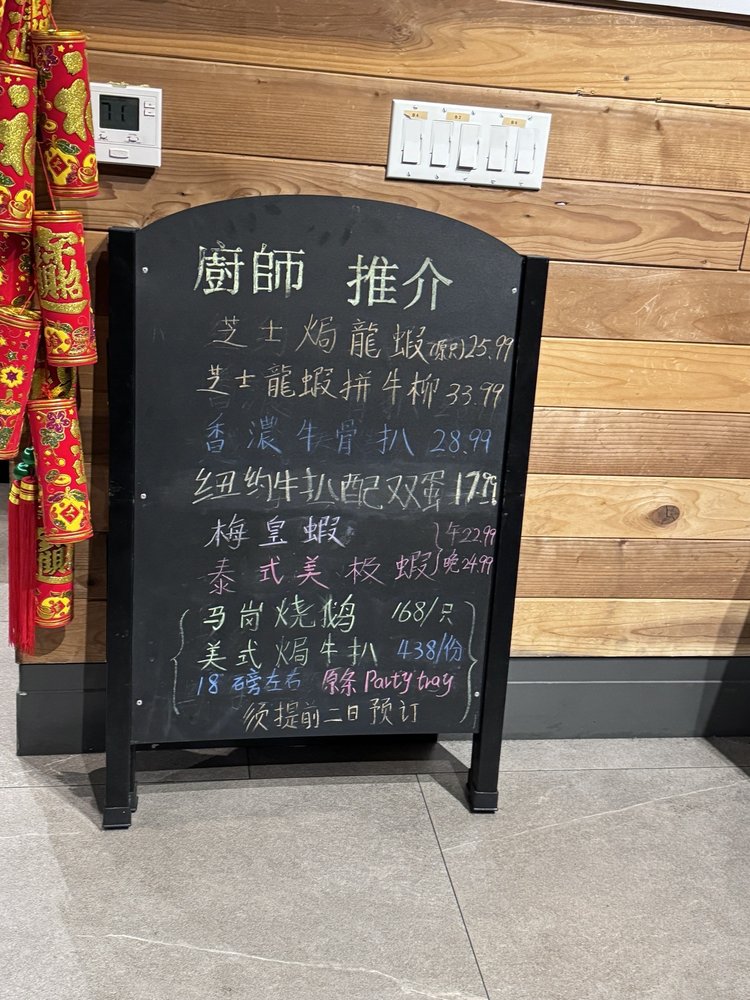 71
廚師 推介
芝士焗龍蝦(原只)25.99
芝士龍蝦拼牛柳 33.99
香濃牛骨扒 28.99
纽约牛扒配双蛋 17.99
梅皇蝦
泰式美极蝦
午22.99
晚24.99
马岗烧鹅 168/只
美式焗牛扒 438/份
18磅左右 原条 Party tray
须提前二日预订